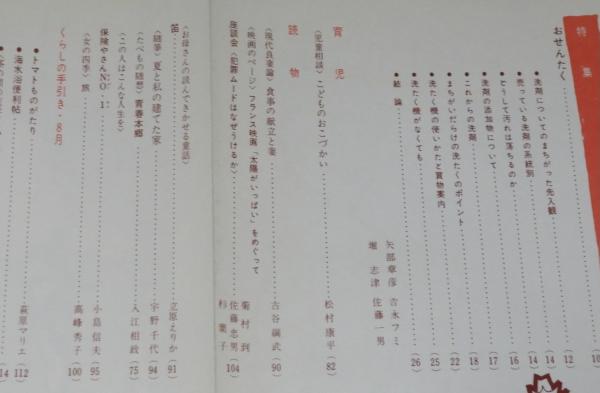 特集
10
おせんたく
12
●洗剤についてのまちがった先入観
14
●売っている洗剤の系統別
14
●どうして汚れは落ちるのか
16
●洗剤の添加物について
17
●これからの洗剤
18
●まちがいだらけの洗たくのポイント
22
●洗たく機の使いかたと買物案内
25
●洗たく機がなくても
26
●結論
矢部章彦 吉永フミ
堀 志津 佐藤一男
育児
〈児童相談〉こどものおこづかい
松村康平 82
読物
〈現代良妻論〉食事の献立と妻
古谷綱武 90
〈映画のページ〉フランス映画「太陽がいっぱい」をめぐって
菊村到
座談会〈犯罪ムードはなぜうけるか〉
佐藤忠男
杉葉子
104
〈お母さんの読んできかせる童話〉
笛
立原えりか 91
〈随筆〉夏と私の建てた家
宇野千代 94
〈たべもの随想〉青春本郷
入江相政 75
〈この人はこんな人生を〉
保険やさんNO・1
小島信夫 95
〈女の四季〉旅
高峰秀子 100
くらしの手引き・8月
●トマトものがたり
萩原マリエ 112
●海水浴便利帖
14